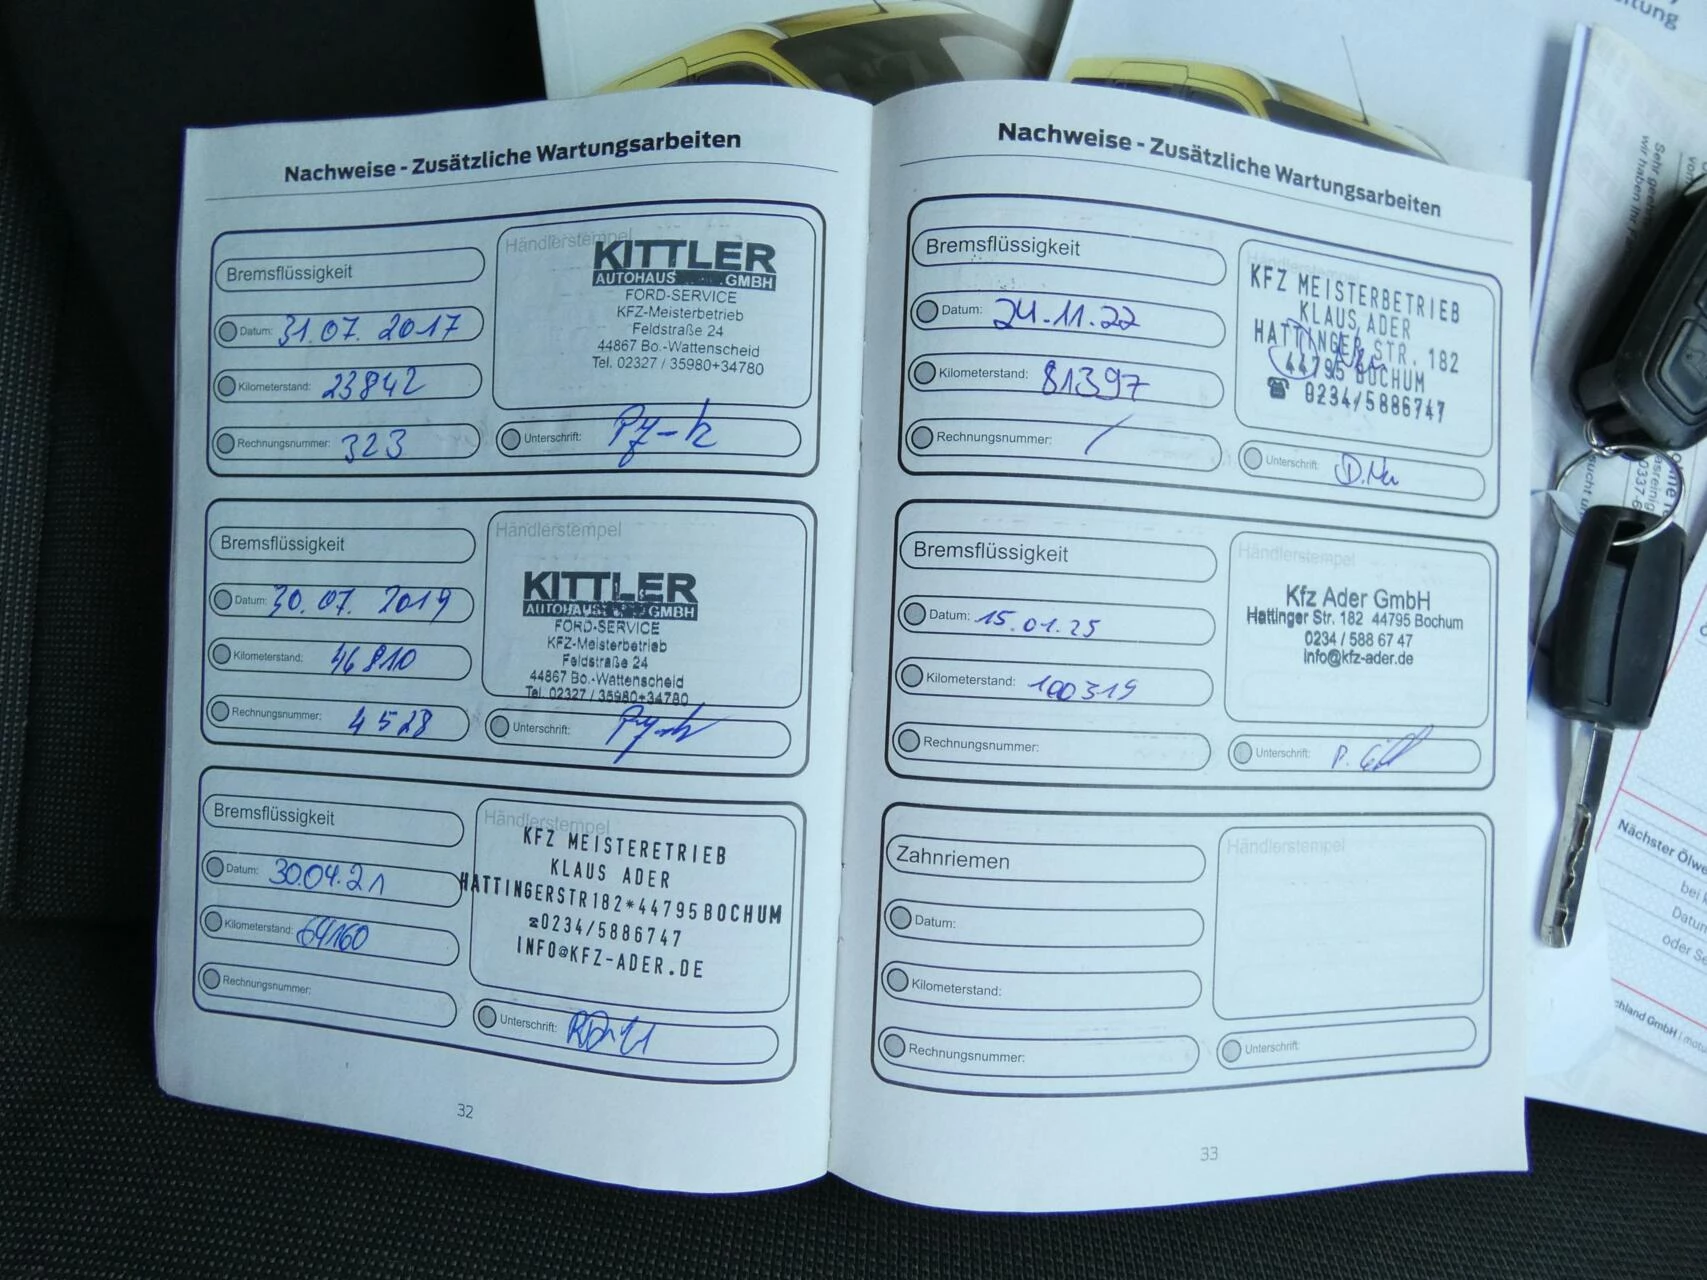 Nachweise - Zusätzliche Wartungsarbeiten
Bremsflüssigkeit
Datum: 31.07. 2017
Kilometerstand: 23842
Rechnungsnummer: 323
Händlerstempel
KITTLER
AUTOHAUS GMBH
FORD-SERVICE
KFZ-Meisterbetrieb
Feldstraße 24
44867 Bo.-Wattenscheid
Tel. 02327 / 35980+34780
Unterschrift:
Bremsflüssigkeit
Datum: 30.07. 2019
Kilometerstand: 46810
Rechnungsnummer: 4528
Händlerstempel
KITTLER
AUTOHAUS GMBH
FORD-SERVICE
KFZ-Meisterbetrieb
Feldstraße 24
44867 Bo.-Wattenscheid
Tel. 02327 / 35980+34780
Unterschrift:
Bremsflüssigkeit
Datum: 30.04.21
Kilometerstand: 64160
Rechnungsnummer:
Händlerstempel
KFZ MEISTERETRIEB
KLAUS ADER
HATTINGERSTR182*44795BOCHUM
☎0234/5886747
INFO@KFZ-ADER.DE
Unterschrift:
32
Nachweise - Zusätzliche Wartungsarbeiten
Bremsflüssigkeit
Datum: 24.11.22
Kilometerstand: 81397
Rechnungsnummer: /
Händlerstempel
KFZ MEISTERBETRIEB
KLAUS ADER
HATTINGER STR. 182
44795 BOCHUM
☎ 0234/5886747
Unterschrift:
Bremsflüssigkeit
Datum: 15.01.25
Kilometerstand: 100319
Rechnungsnummer:
Händlerstempel
Kfz Ader GmbH
Hattinger Str. 182 44795 Bochum
0234 / 588 67 47
Info@kfz-ader.de
Unterschrift:
Zahnriemen
Datum:
Kilometerstand:
Rechnungsnummer:
Händlerstempel
Unterschrift:
33
Sehr geehrte
wir haben Ihr
Nächster Ölwe
bei
Datum
oder Se
chland GmbH